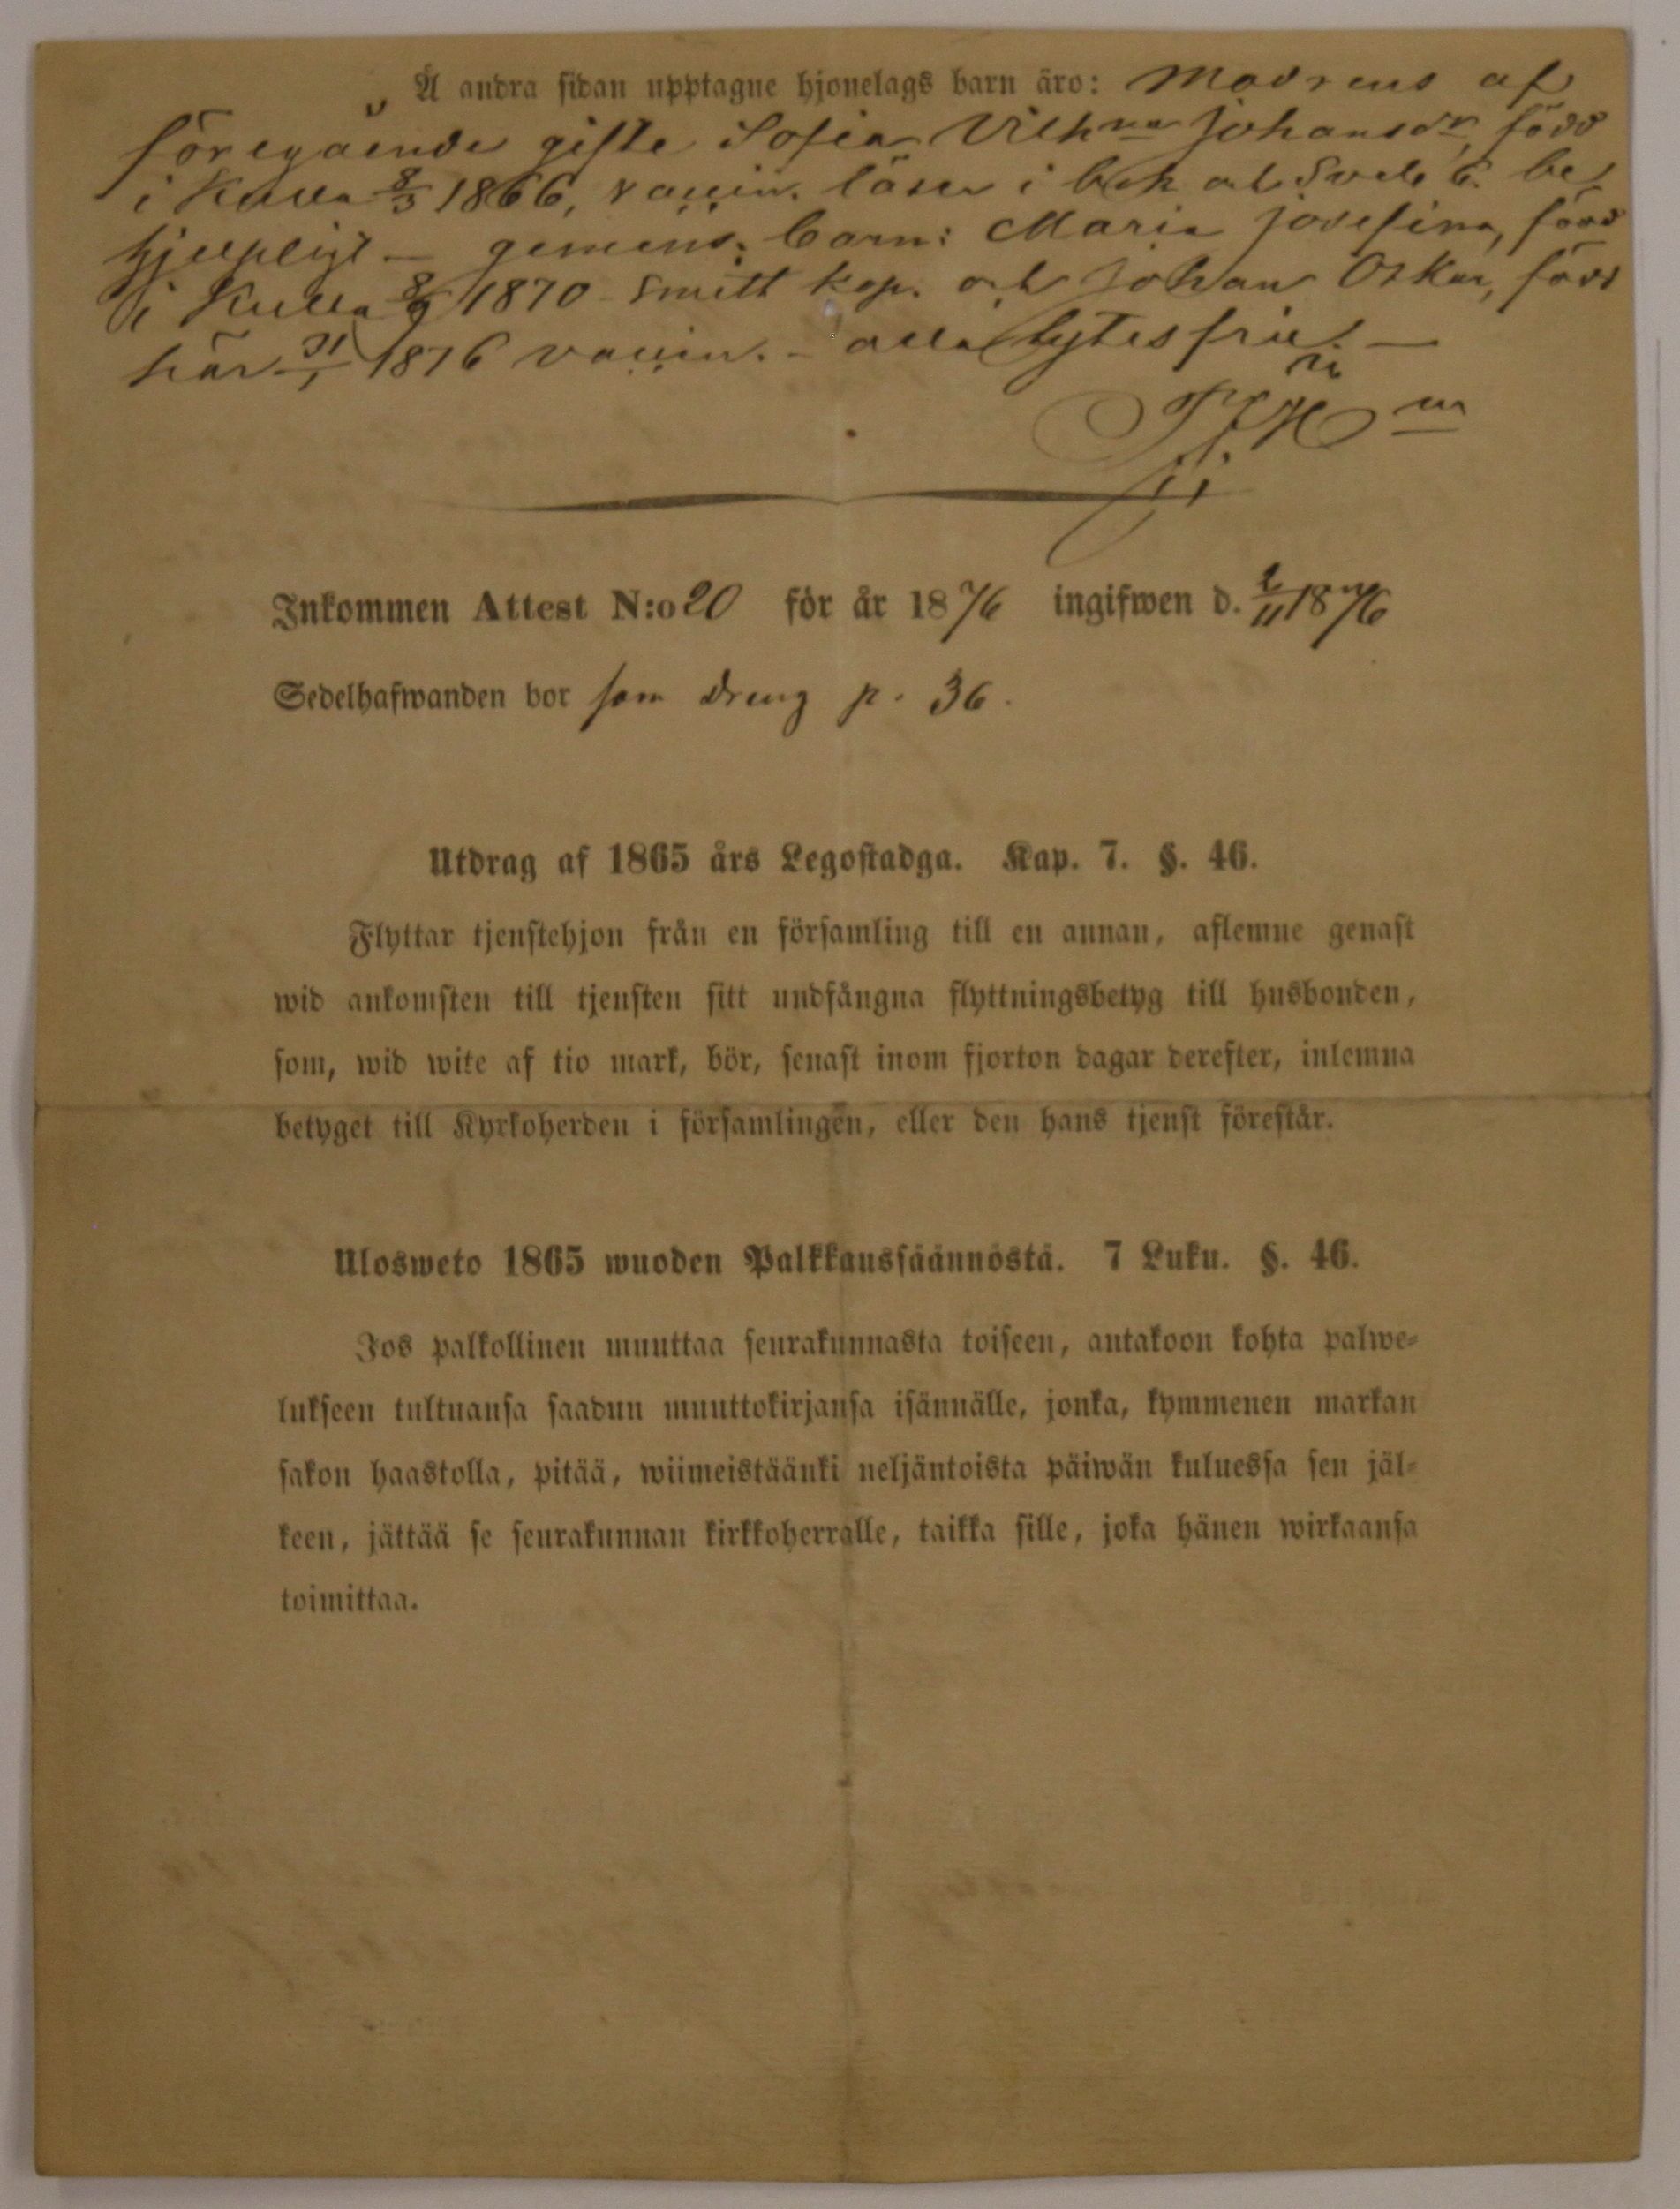 Å andra sidan upptagne hjonelags barn äro: Modrens af
föregående gifte Sofia Vilhna Johansdr, född
i Kulla 8/3 1866, vaccin. läser i bok och Svebel. be-
hjelpligt — gemens. barn: Maria Josefina, född
i Kulla 8/9 1870 Smitt kop. och Johan Oskar, född
här 31/1 1876 vaccin. - alla lytesfrie. —
Inkommen Attest N:o 20 för år 1876 ingifwen d. 2/11 1876
Sedelhafwanden bor som dreng p. 36.
Utdrag af 1865 års Legostadga. Kap. 7. §. 46.
Flyttar tjenstehjon från en församling till en annan, aflemne genast
wid ankomsten till tjensten sitt undfångna flyttningsbetyg till husbonden,
som, wid wite af tio mark, bör, senast inom fjorton dagar derefter, inlemna
betyget till Kyrkoherden i församlingen, eller den hans tjenst förestår.
Ulosweto 1865 wuoden Palkkaussäännöstä. 7 Luku. §. 46.
Jos palkollinen muuttaa seurakunnasta toiseen, antakoon kohta palwe-
lukseen tultuansa saadun muuttokirjansa isännälle, jonka, kymmenen markan
sakon haastolla, pitää, wiimeistäänki neljäntoista päiwän kuluessa sen jäl-
keen, jättää se seurakunnan kirkkoherralle, taikka sille, joka hänen wirkaansa
toimittaa.